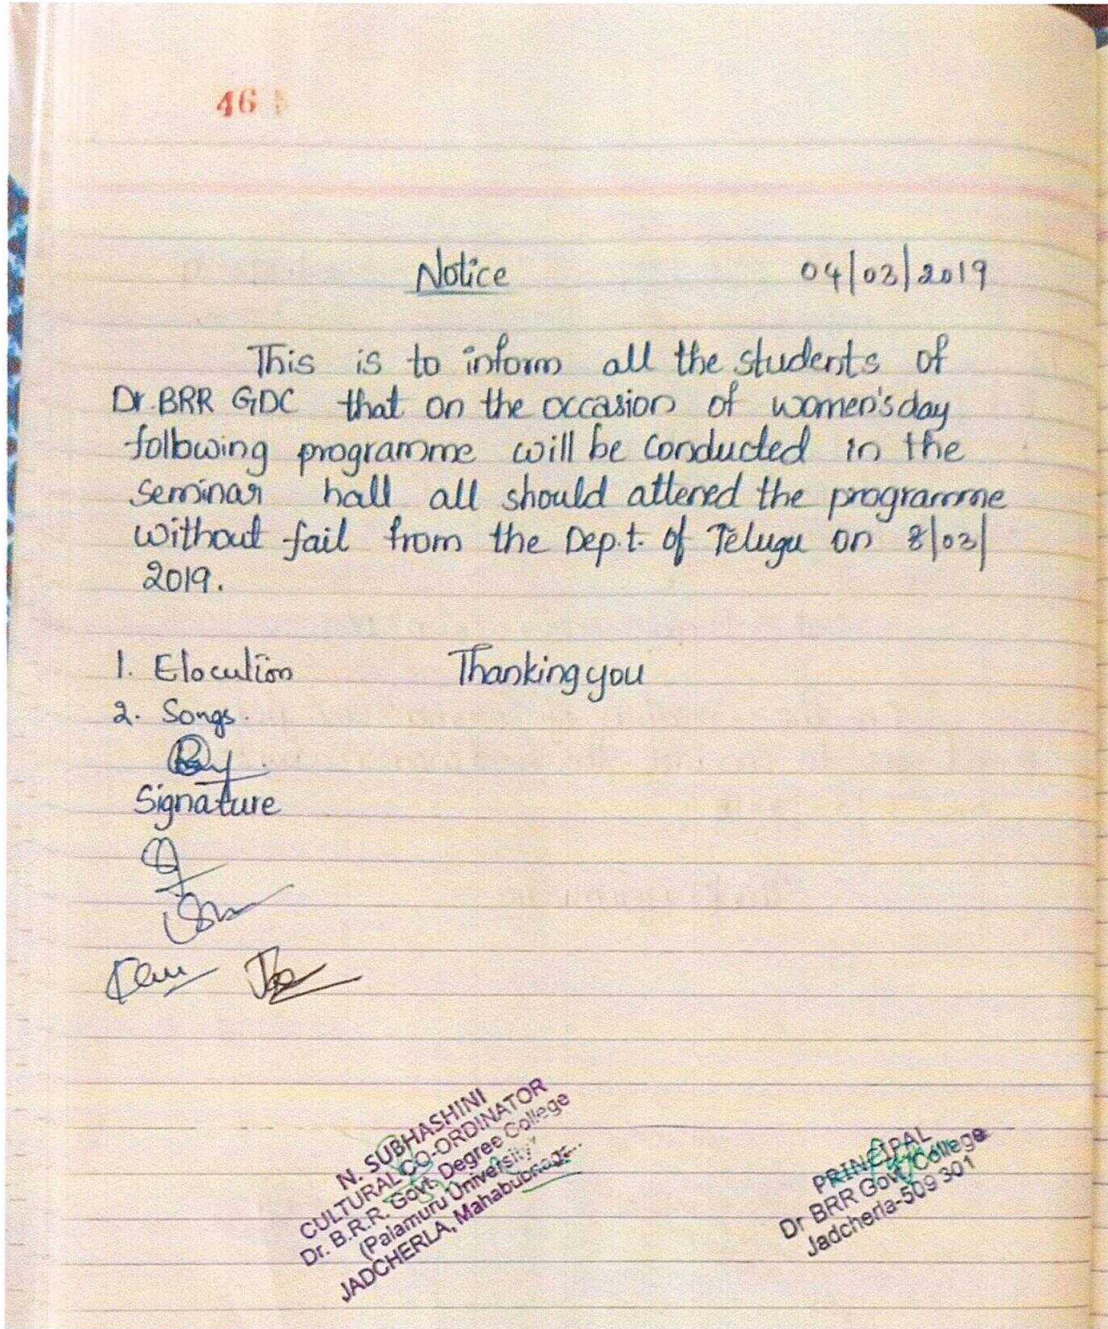 46
Notice 04/03/2019
This is to inform all the students of
Dr.BRR GDC that on the occasion of women's day
following programme will be conducted in the
seminar hall all should attened the programme
without fail from the Dep.t. of Telugu on 8/03/
2019.
1. Elocution Thanking you
2. Songs.
Signature
N. SUBHASHINI
CULTURAL CO-ORDINATOR
Dr. B.R.R. Govt. Degree College
(Palamuru University)
JADCHERLA, Mahabubnagar
PRINCIPAL
Dr BRR Govt College
Jadcherla-509 301